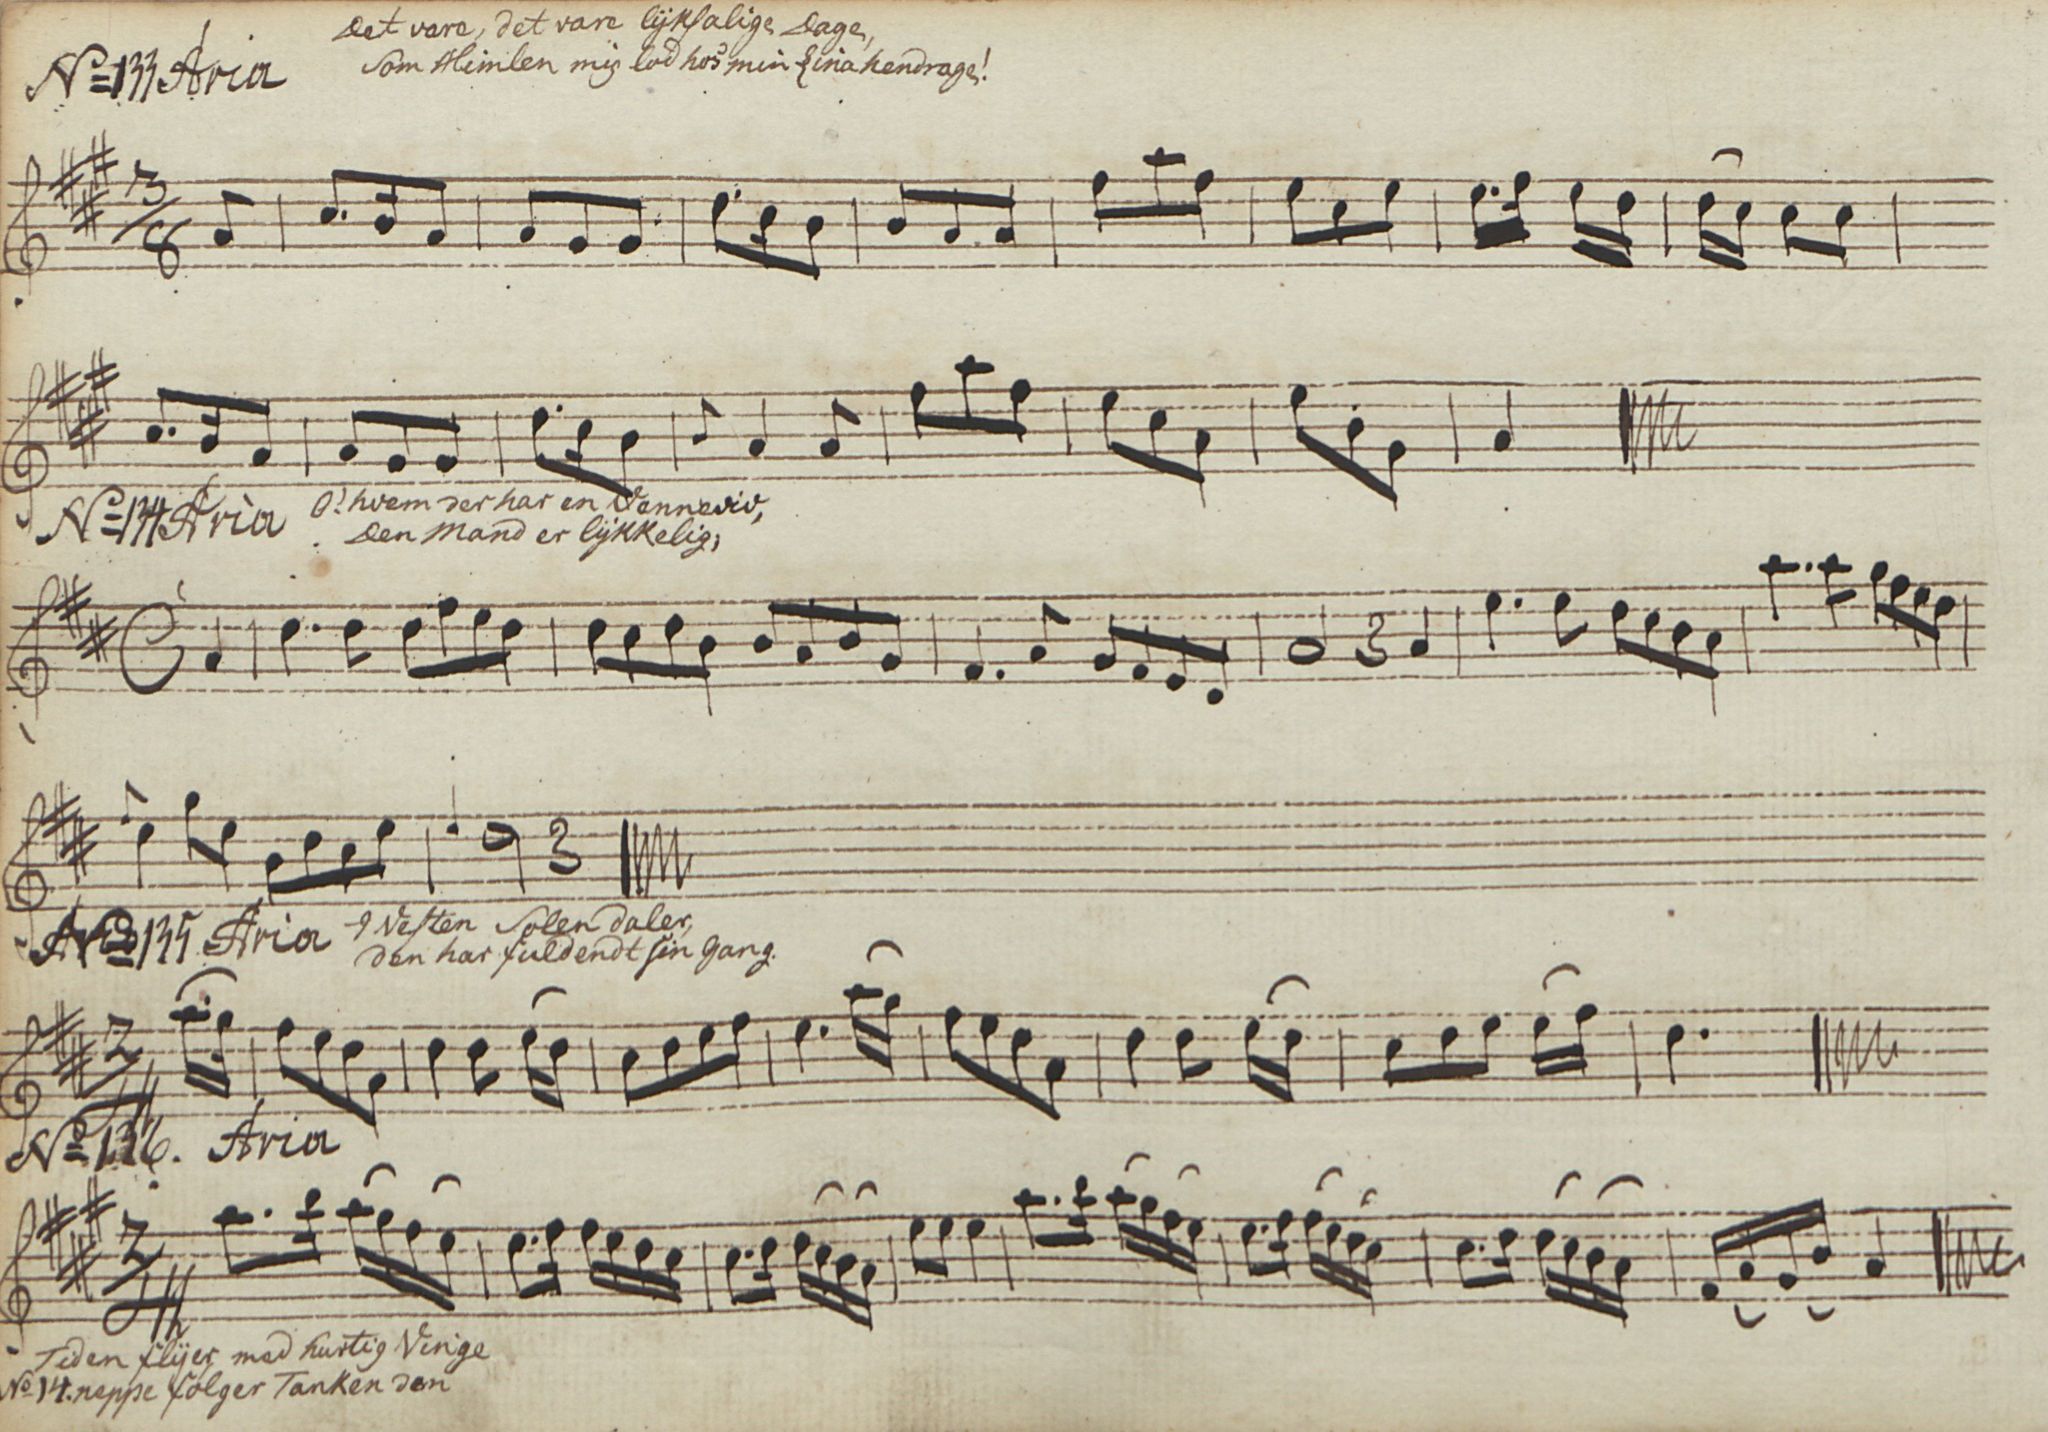 No 133 Aria Det vare, det vare lÿksalige Dage,
Som Himlen mig lod hos min Eina hendrage!
3/8
No 134 Aria O! hvem der har en Venneviv,
Den Mand er lÿkkelig;
C
No 135 Aria I Vesten Solen daler,
den har fuldendt sin Gang.
2/4
No 136. Aria
2/4
Tiden flÿer med hurtig Vinge
No 14. neppe følger Tanken den